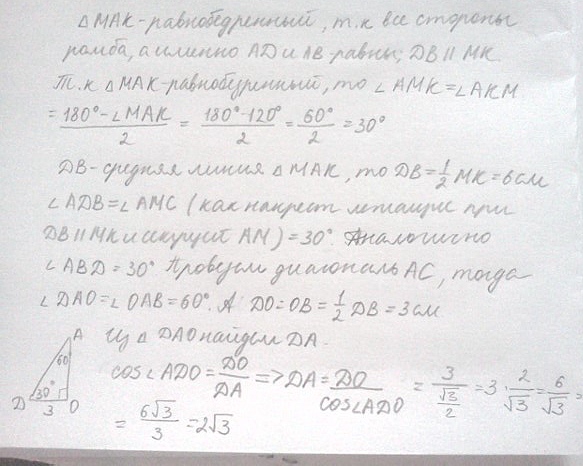 △MAK - равнобедренный, т.к все стороны
ромба, а именно AD и AB - равны; DB || MK
Т.к △MAK - равнобедренный, то ∠AMK = ∠AKM
= (180° - ∠MAK)/2 = (180° - 120°)/2 = 60°/2 = 30°
DB - средняя линия △MAK, то DB = 1/2 MK = 6 см
∠ADB = ∠AMC (как накрест лежащие при
DB || MK и секущей AM) = 30°. Аналогично
∠ABD = 30° Проведем диагональ AC, тогда
∠DAO = ∠OAB = 60°. А DO = OB = 1/2 DB = 3 см
Из △DAO найдем DA.
A
60
30°
D
3
O
cos∠ADO = DO/DA => DA = DO/cos∠ADO = 3/(√3/2) = 3 · 2/√3 = 6/√3 =
= 6√3/3 = 2√3